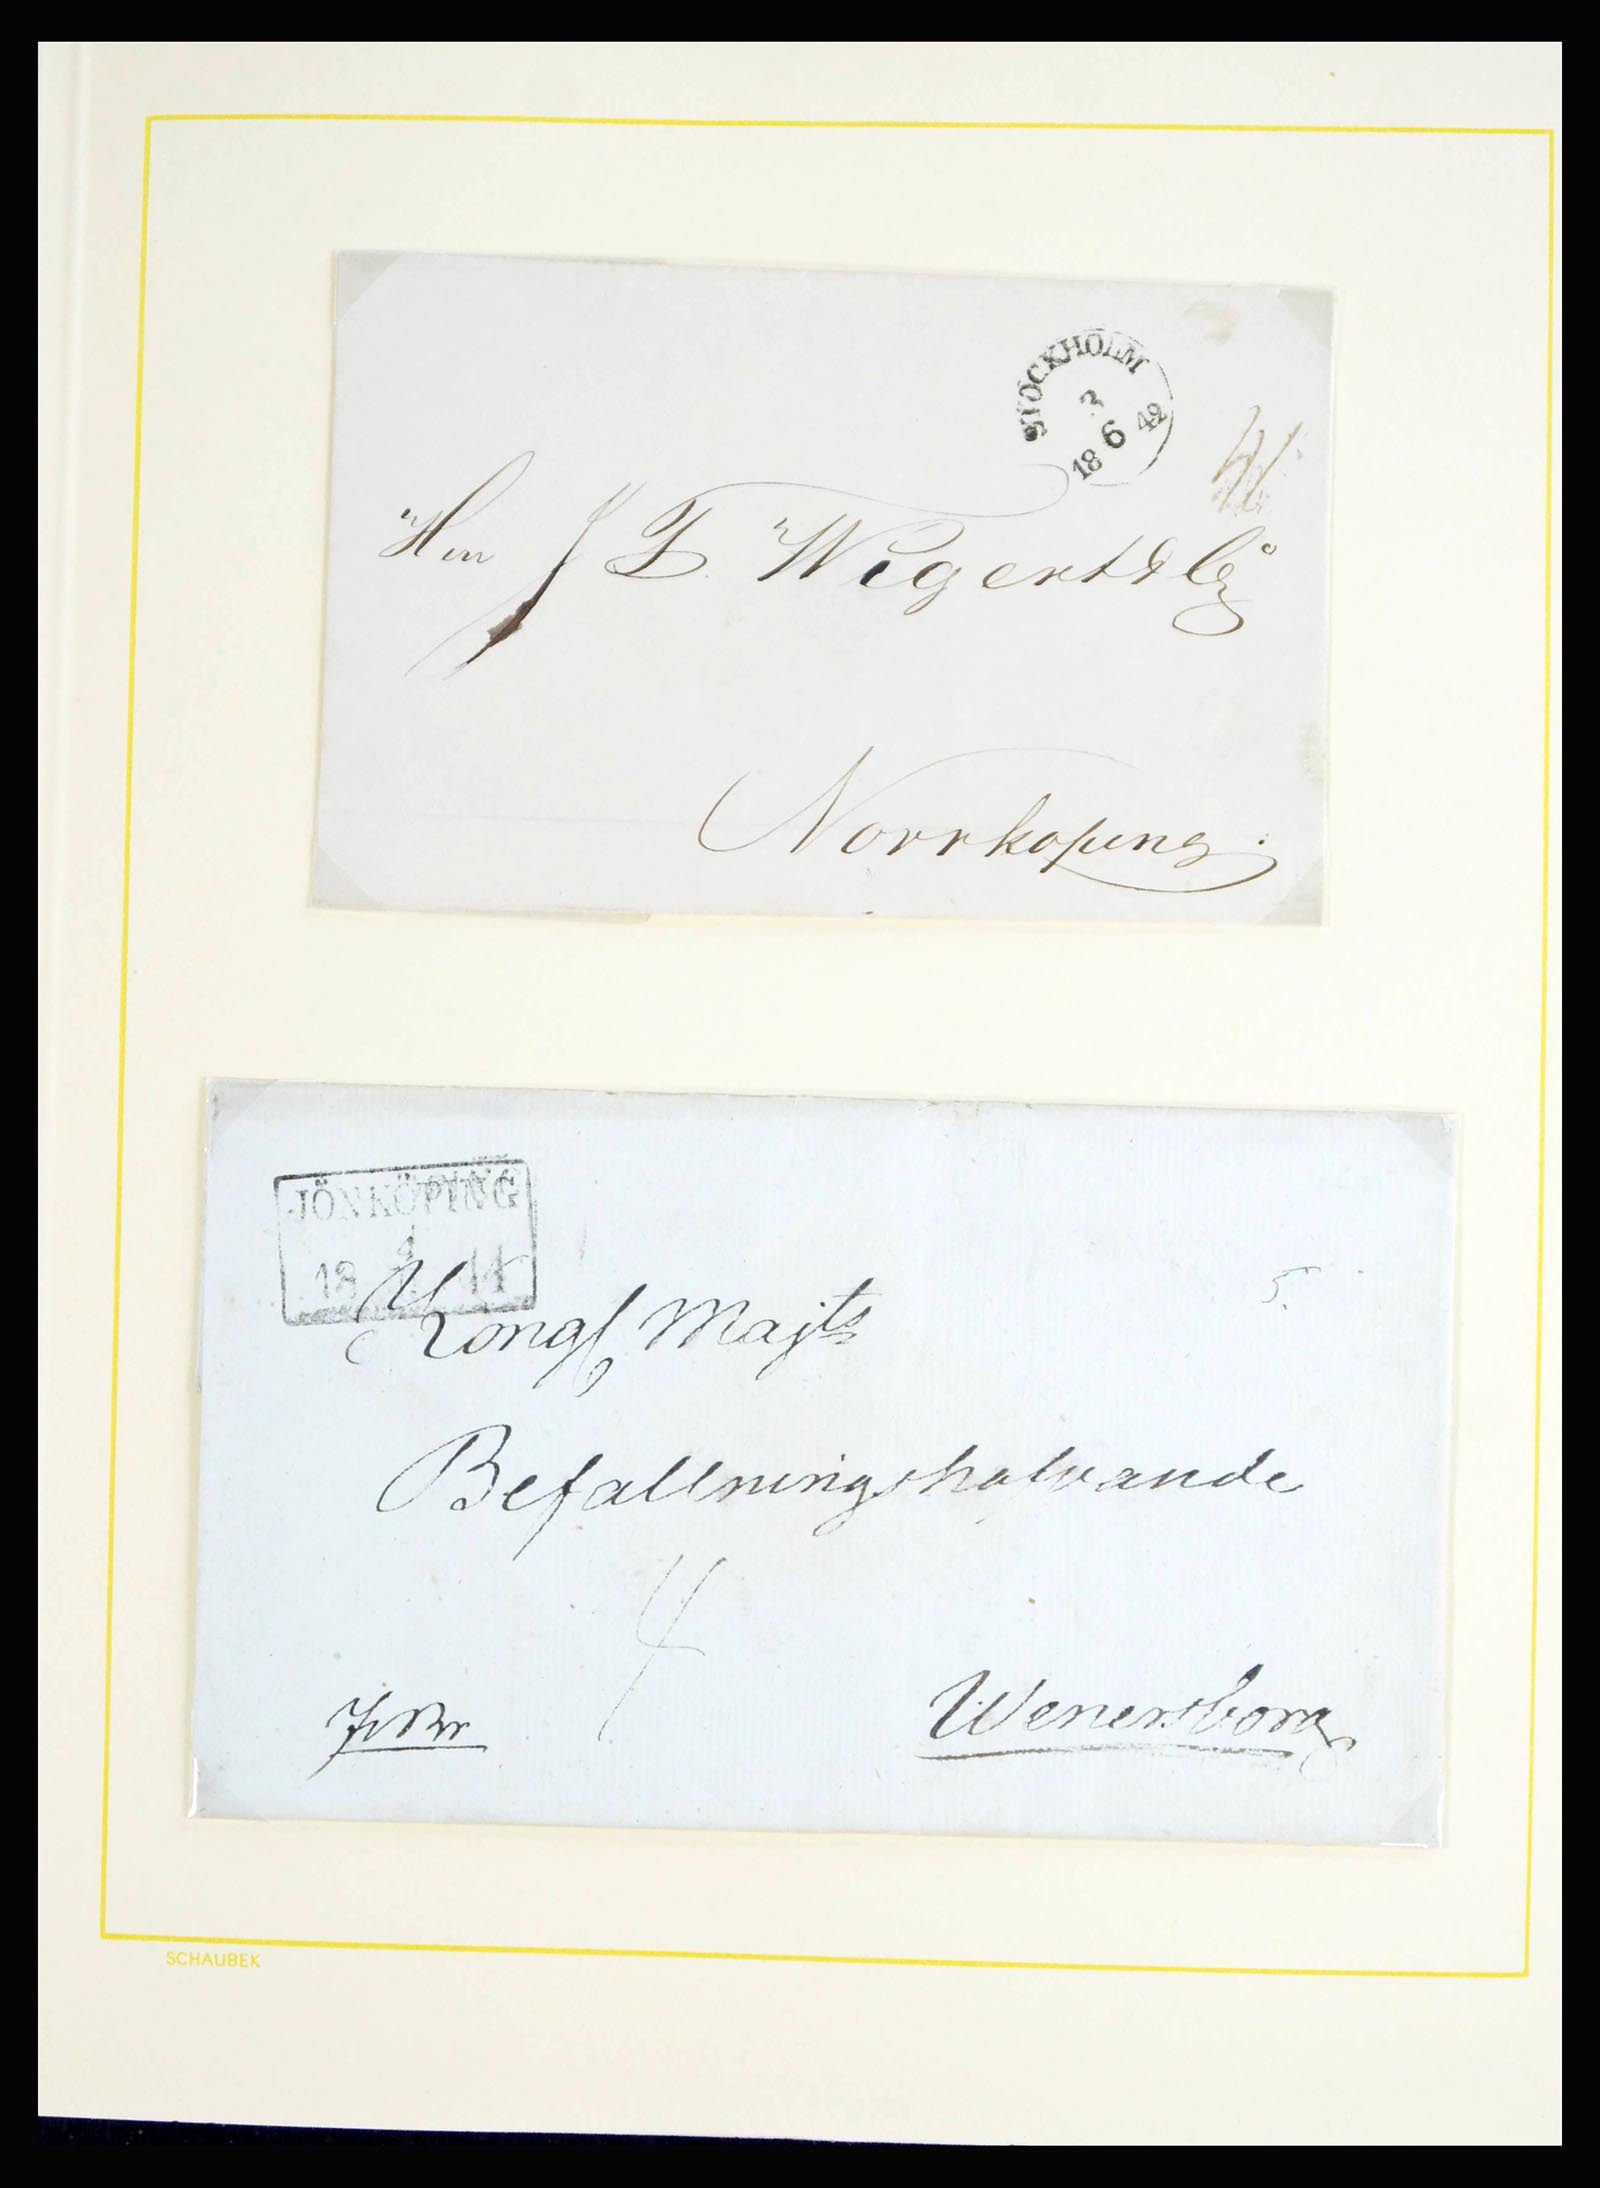 STOCKHOLM
3
6
18 42
Herr J F Wigert & Co
Norrköping.
JÖNKÖPING
4
18 44
5.
Kongl Majts
Befallningshafvande
4
Fr Br
Wenersborg
SCHAUBEK